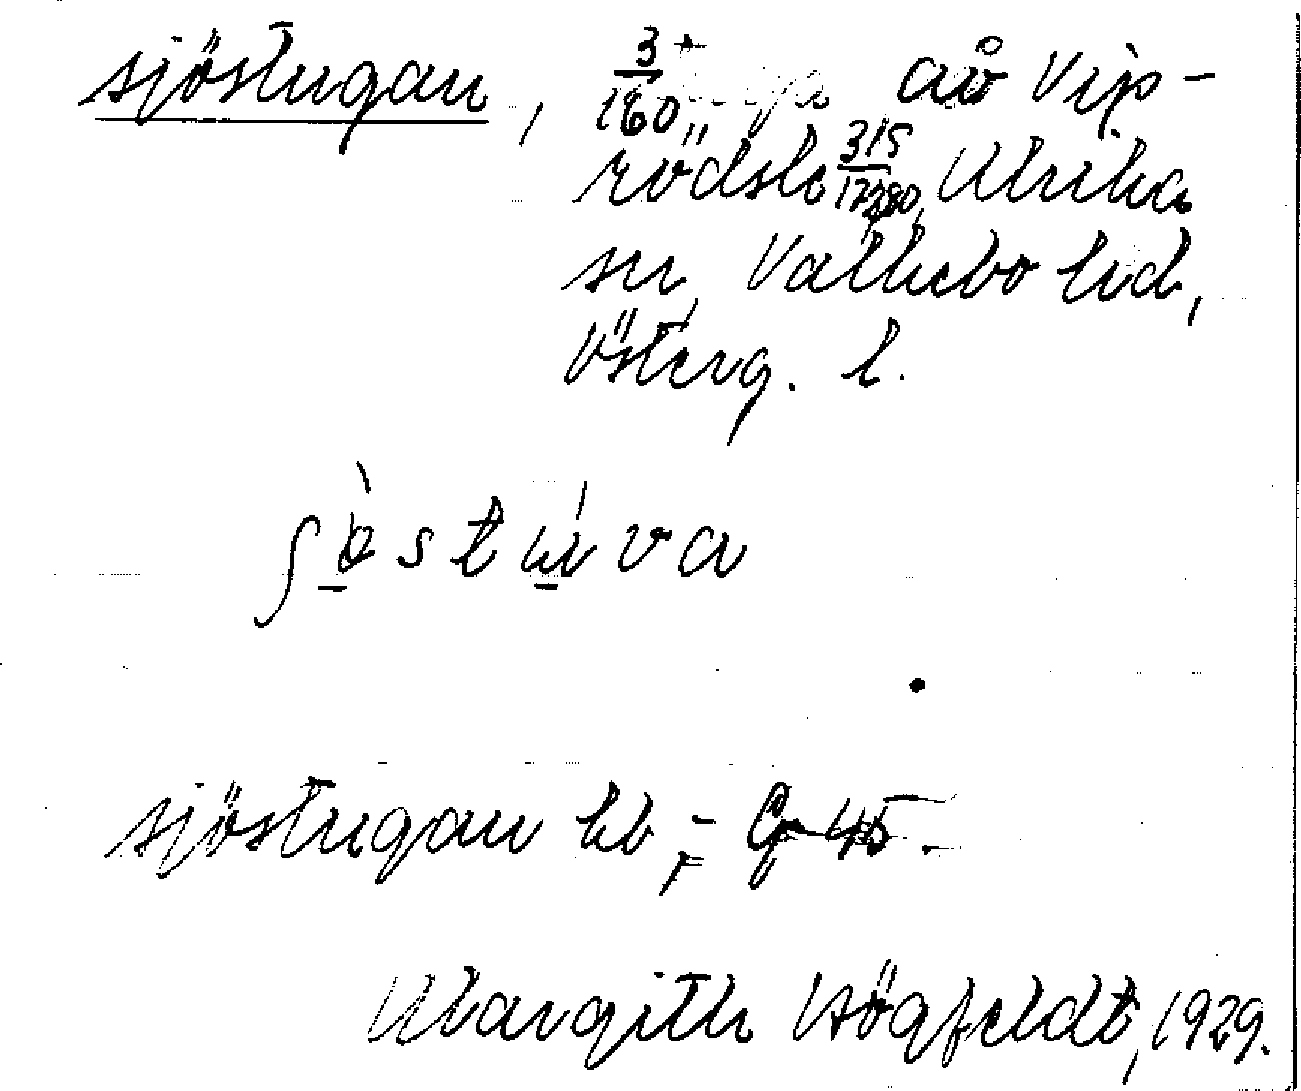 sjöstugan, 3/160 av Vip-
rödsle 315/17280, Ulrika
sn, Valkebo hd,
Österg. l.
ʃöstúva
sjöstugan hb,
Margith Högfeldt, 1929.